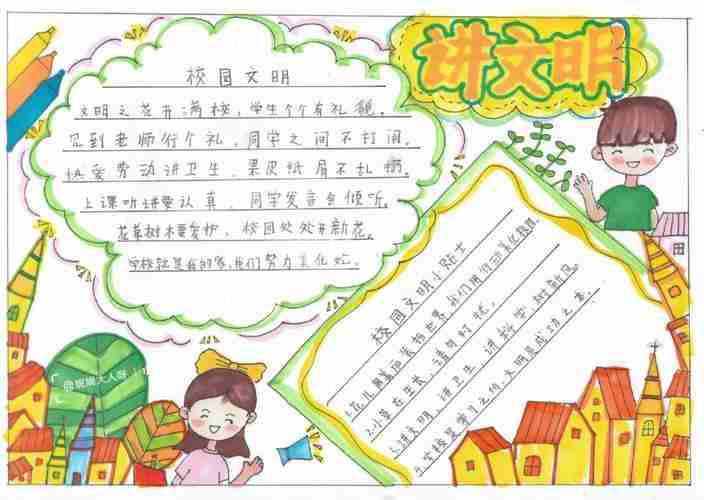 讲文明
校园文明
文明之花开满校，学生个个有礼貌。
见到老师行个礼，同学之间不打闹。
热爱劳动讲卫生，果皮纸屑不乱扔。
上课听讲要认真，同学发言会倾听。
花草树木要爱护，校园处处开新花。
学校就是我的家，我们努力美化
校园文明小贴士
1.花儿用美丽装扮世界，我们用行动美化校园。
2.小草在生长，请勿打扰。
3.讲文明、讲卫生、讲科学、树新风。
4.学校是学习之所，文明是成功之本。
大人呀